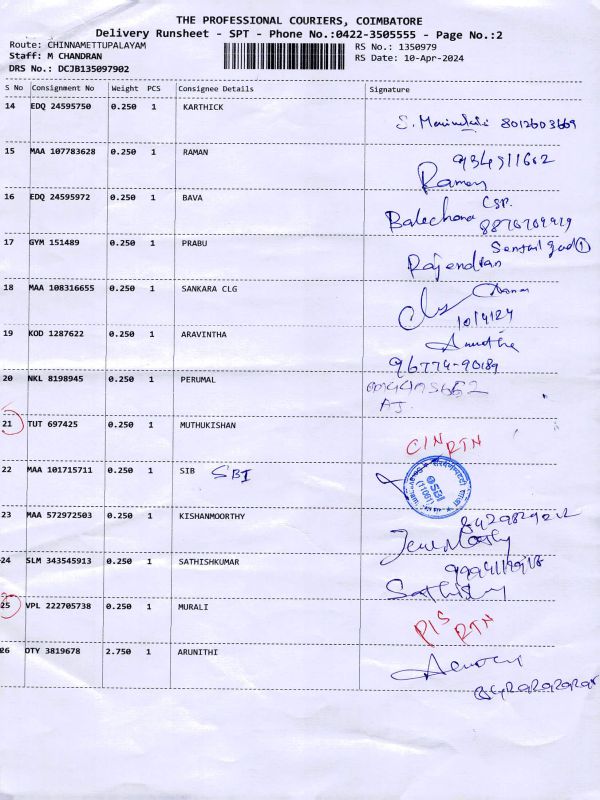 THE PROFESSIONAL COURIERS, COIMBATORE
Delivery Runsheet - SPT - Phone No.:0422-3505555 - Page No.:2
Route: CHINNAMETTUPALAYAM
RS No.: 1350979
Staff: M CHANDRAN
RS Date: 10-Apr-2024
DRS No.: DCJB135097902
S No Consignment No Weight PCS Consignee Details Signature
14 EDQ 24595750 0.250 1 KARTHICK
8012603669
15 MAA 107783628 0.250 1 RAMAN
Raman
16 EDQ 24595972 0.250 1 BAVA
17 GYM 151489 0.250 1 PRABU
Rajendran
18 MAA 108316655 0.250 1 SANKARA CLG
10/4/24
19 KOD 1287622 0.250 1 ARAVINTHA
96774-90189
20 NKL 8198945 0.250 1 PERUMAL
AJ.
21 TUT 697425 0.250 1 MUTHUKISHAN
CIN RTN
22 MAA 101715711 0.250 1 SIB SBI
SBI
23 MAA 572972503 0.250 1 KISHANMOORTHY
24 SLM 343545913 0.250 1 SATHISHKUMAR
25 VPL 222705738 0.250 1 MURALI
PIS RTN
26 OTY 3819678 2.750 1 ARUNITHI